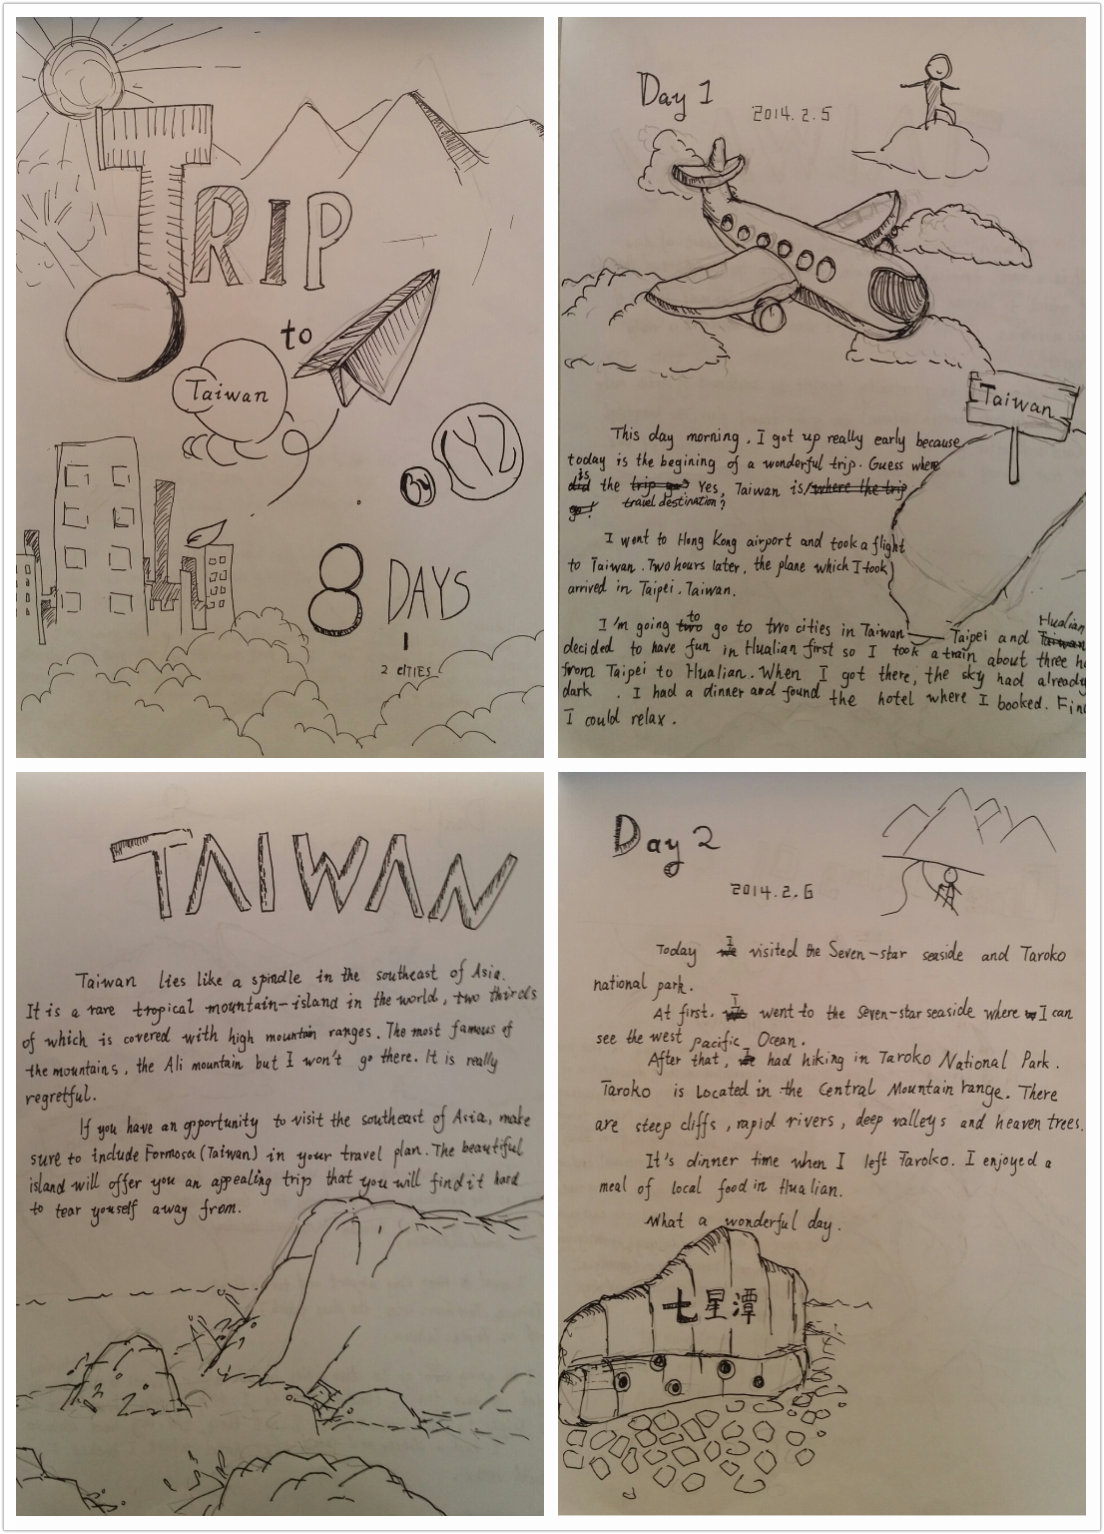 TRIP
to
Taiwan
By
CYZ
8 DAYS
2 CITIES
Day 1
2014.2.5
Taiwan
This day morning, I got up really early because
today is the begining of a wonderful trip. Guess where
is
did the trip go? Yes, Taiwan is where the trip
travel destination?
go!
I went to Hong Kong airport and took a flight
to Taiwan. Two hours later, the plane which I took
arrived in Taipei, Taiwan.
to Hualian
I'm going two go to two cities in Taiwan —— Taipei and Taiwan
decided to have fun in Hualian first so I took a train about three
from Taipei to Hualian. When I got there, the sky had already
dark . I had a dinner and found the hotel where I booked.
I could relax.
TAIWAN
Taiwan lies like a spindle in the southeast of Asia.
It is a rare tropical mountain-island in the world, two thirds
of which is covered with high mountain ranges. The most famous of
the mountains, the Ali mountain but I won't go there. It is really
regretful.
If you have an opportunity to visit the southeast of Asia, make
sure to include Formosa (Taiwan) in your travel plan. The beautiful
island will offer you an appealing trip that you will find it hard
to tear yourself away from.
Day 2
2014.2.6
I
Today we visited the Seven-star seaside and Taroko
national park.
I
At first, we went to the Seven-star seaside where I can
see the west pacific Ocean.
I
After that, we had hiking in Taroko National Park.
Taroko is Located in the Central Mountain range. There
are steep cliffs, rapid rivers, deep valleys and heaven trees.
It's dinner time when I left Taroko. I enjoyed a
meal of local food in Hualian.
What a wonderful day.
七星潭